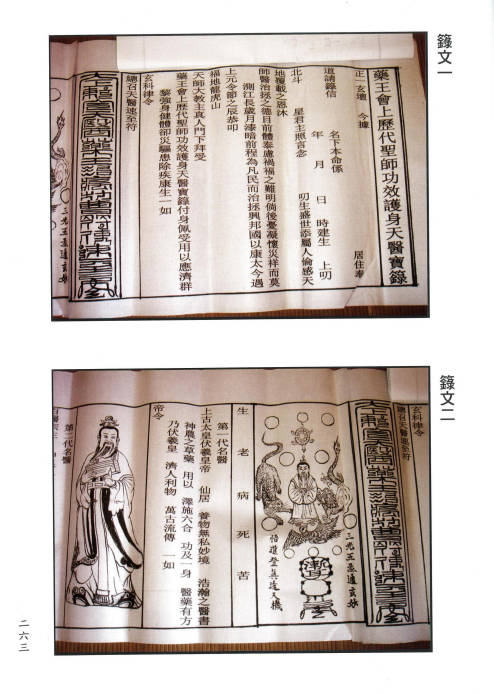 籙文一
藥王會上歷代聖師功效護身天醫寶籙
正一玄壇 今據 居住奉
道請籙信 名下本命係
年 月 日 時建生 上叨
北斗 星君主照言念 叨生盛世添屬人倫感天
地覆載之恩沐
師醫治拯之德目前體泰慮禍福之難明倘後憂凝懷災祥而莫
測江長歲月漆暗前程為凡民而治拯興邦國以康太今遇
上元令節之辰恭叩
福地龍虎山
天師大教主真人門下拜受
藥王會上歷代聖師功效護身天醫寶籙付身佩受用以應濟群
黎強身健體卻災驅患除疾康生一如
玄科律令
總召天醫速至符
三九五炁通玄妙
籙文二
玄科律令
總召天醫速至符
三九五炁通玄妙
悟道登真達天機
生 老 病 死 苦
第一代名醫
上古太皇伏羲皇帝 仙居 養物無私妙境 浩瀚之醫書
神農之草藥 用以 澤施六合 功及一身 醫藥有方
乃伏羲皇 濟人利物 萬古流傳 一如
帝令
第二代名醫
二六三